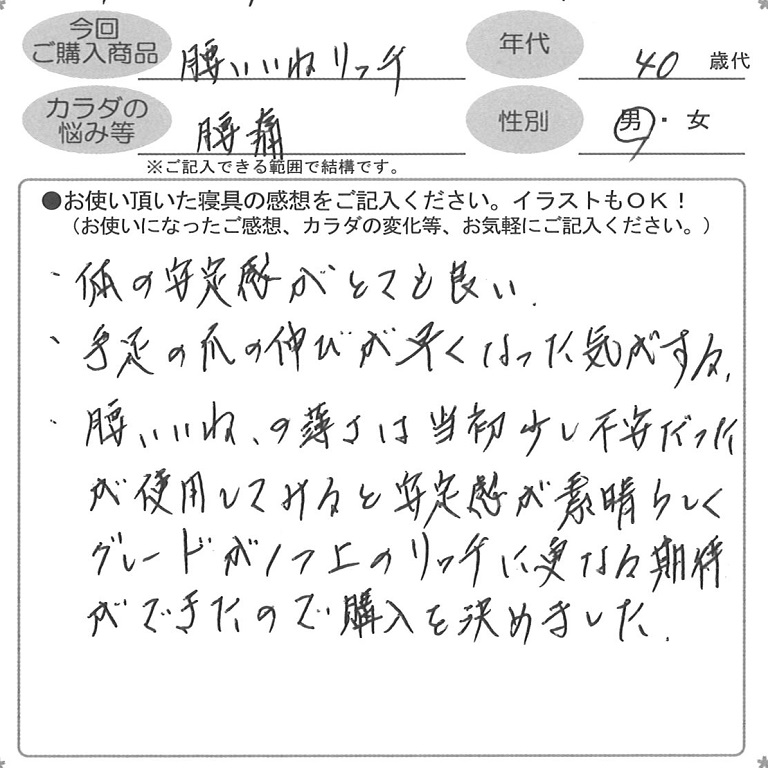 今回
ご購入商品
腰いいねリッチ
年代
40 歳代
カラダの
悩み等
腰痛
性別
男・女
※ご記入できる範囲で結構です。
●お使い頂いた寝具の感想をご記入ください。イラストもOK！
（お使いになったご感想、カラダの変化等、お気軽にご記入ください。）
・体の安定感がとても良い.
・手足の爪の伸びが早くなった気がする.
・腰いいね、の薄さは当初少し不安だった
が使用してみると安定感が素晴らしく
グレードが1つ上のリッチに更なる期待
ができたので購入を決めました.